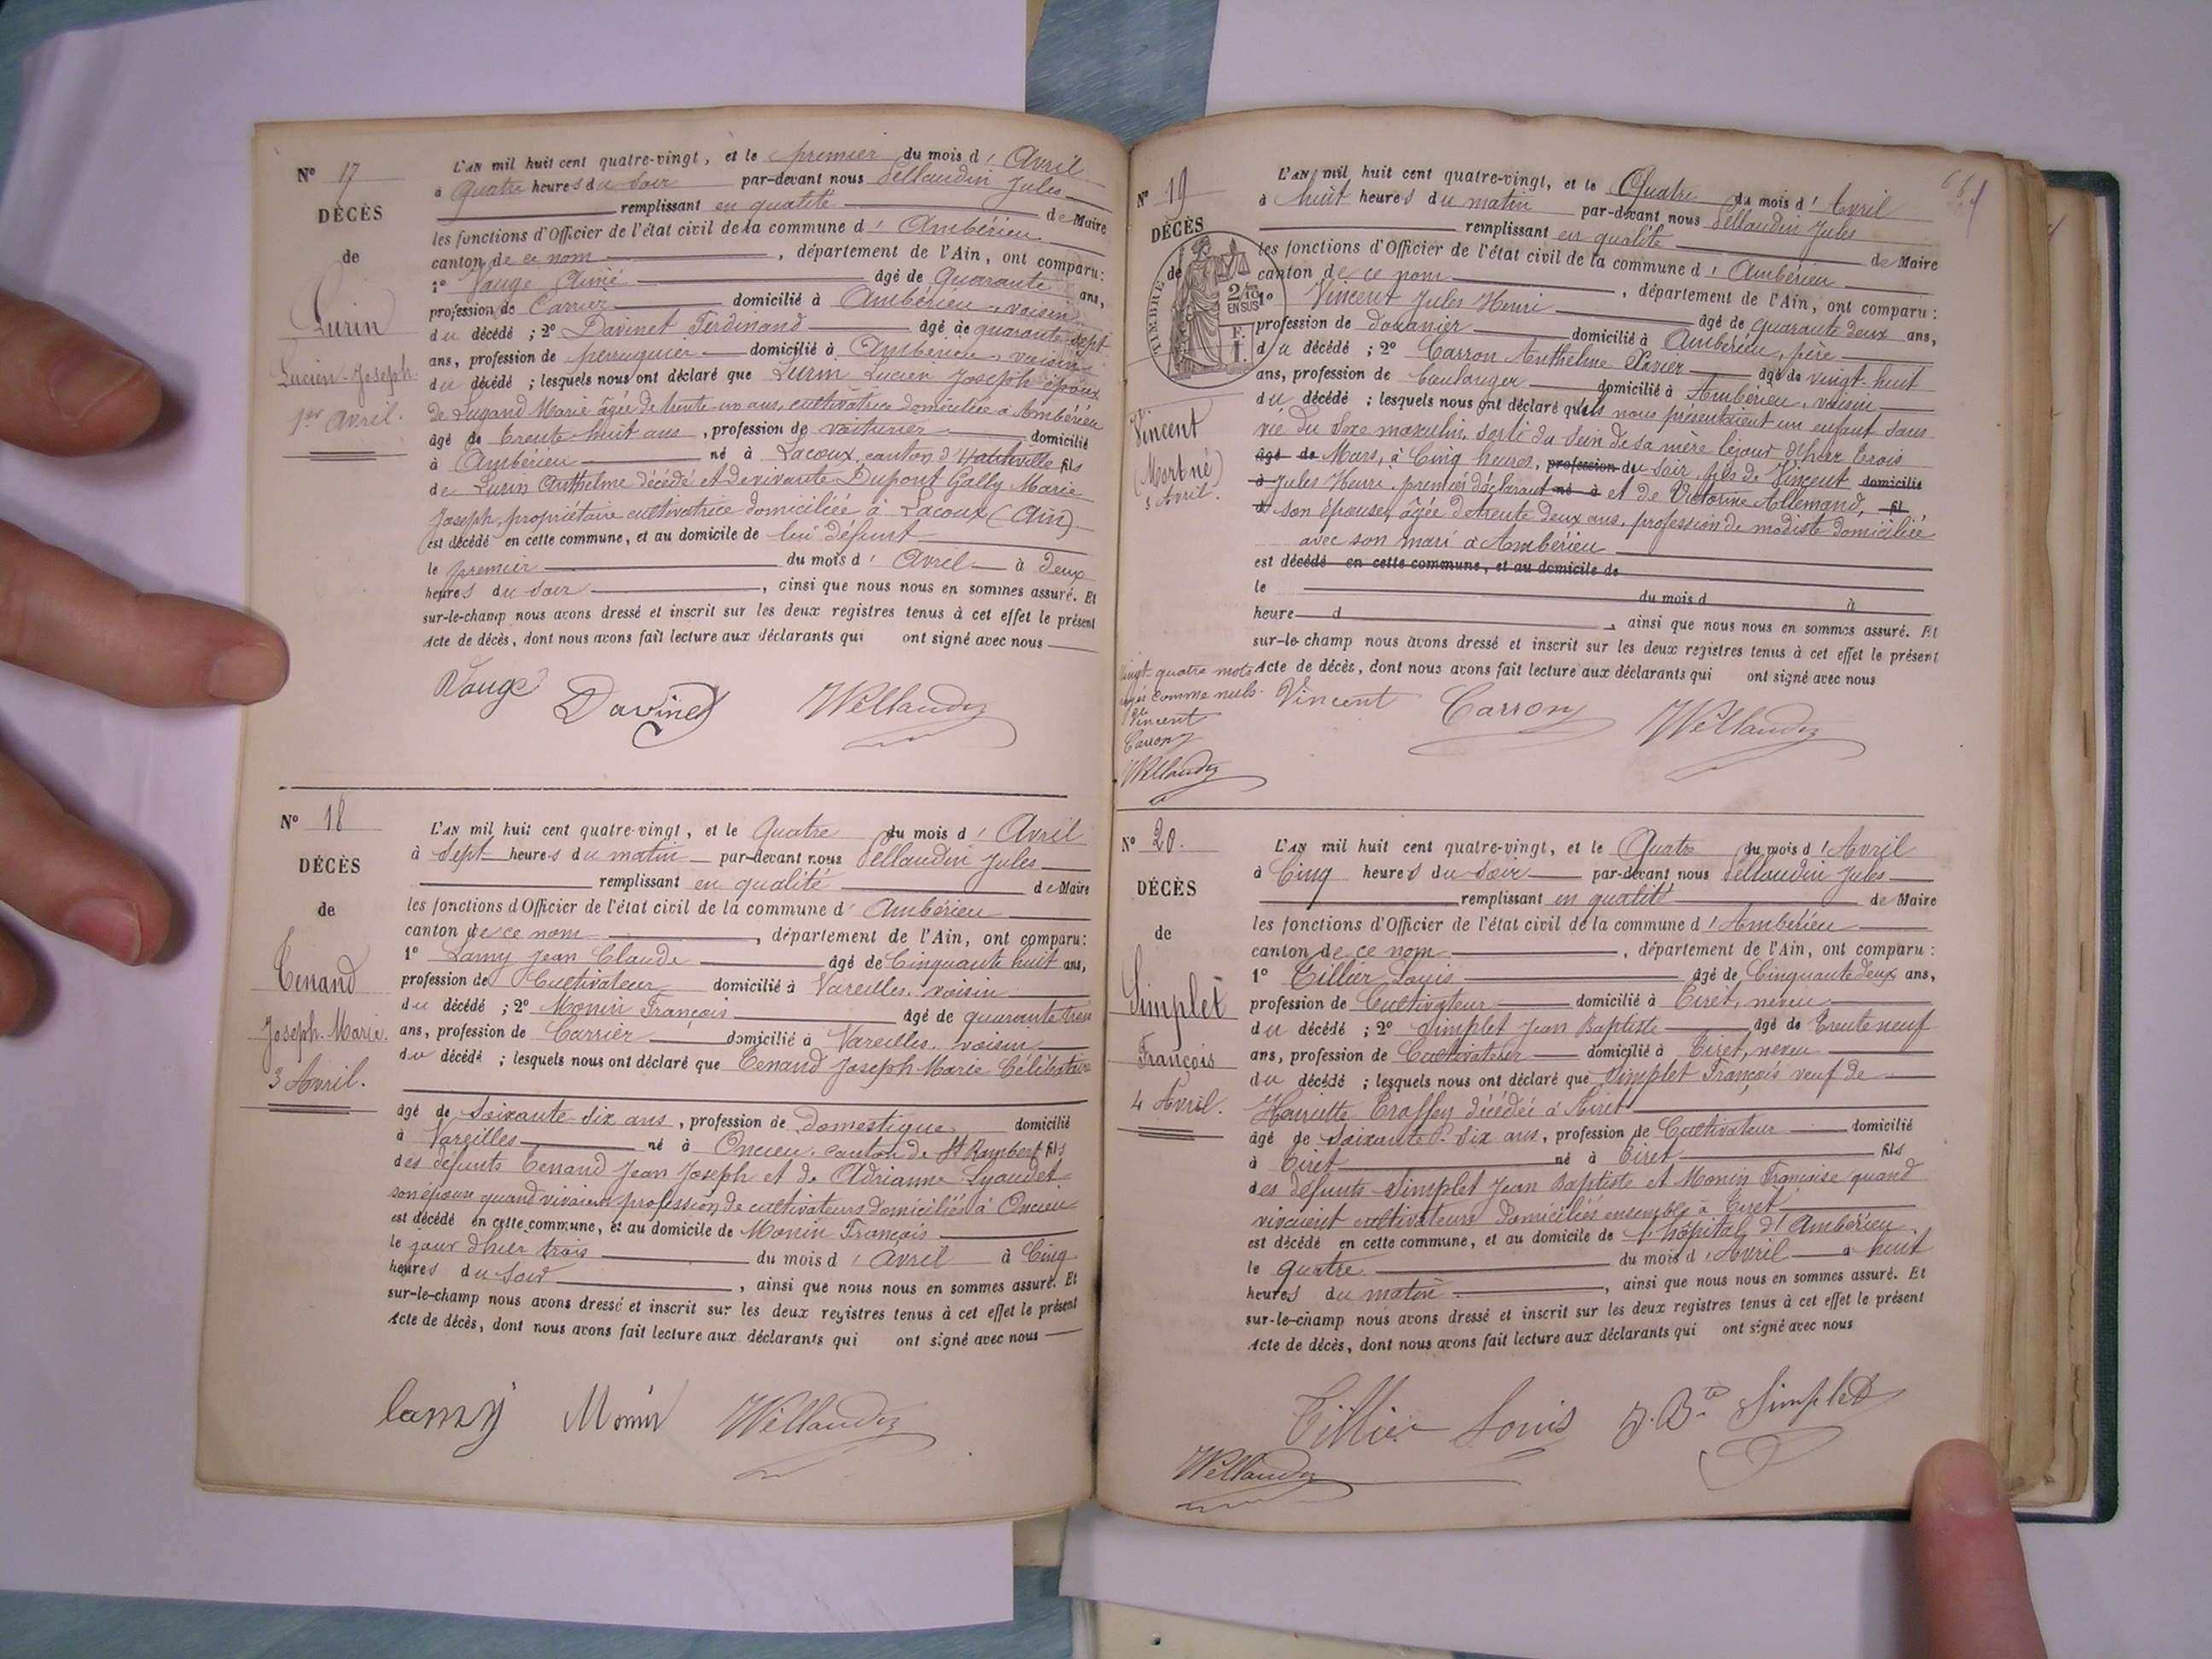 N° 17
DÉCÈS
de
Lurin
Lucien-Joseph
1er Avril.
L'AN mil huit cent quatre-vingt, et le premier du mois d' Avril
à quatre heures du soir par-devant nous Pellaudin Jules
remplissant en qualité de Maire
les fonctions d'Officier de l'état civil de la commune d' Ambérieu
canton de ce nom, département de l'Ain, ont comparu:
1° Vauge Aimé âgé de quarante ans,
profession de Carrier domicilié à Ambérieu, voisin
du décédé ; 2° Davinet Ferdinand âgé de quarante-sept
ans, profession de perruquier domicilié à Ambérieu, voisin
du décédé ; lesquels nous ont déclaré que Lurin Lucien Joseph époux
de Lugand Marie âgée de trente un ans, cultivatrice domiciliée à Ambérieu
âgé de trente huit ans, profession de voiturier domicilié
à Ambérieu né à Lacoux, canton d'Hauteville fils
de Lurin Anthelme décédé et de vivante Dupont Gally Marie
Joseph, propriétaire cultivatrice domiciliée à Lacoux (Ain)
est décédé en cette commune, et au domicile de lui défunt
le premier du mois d' Avril à deux
heures du soir, ainsi que nous nous en sommes assuré. Et
sur-le-champ nous avons dressé et inscrit sur les deux registres tenus à cet effet le présent
Acte de décès, dont nous avons fait lecture aux déclarants qui ont signé avec nous
Vauge Davinet Pellaudin
N° 18
DÉCÈS
de
Tenand
Joseph-Marie.
3 Avril.
L'AN mil huit cent quatre-vingt, et le Quatre du mois d' Avril
à sept heures du matin par-devant nous Pellaudin Jules
remplissant en qualité de Maire
les fonctions d'Officier de l'état civil de la commune d' Ambérieu
canton de ce nom, département de l'Ain, ont comparu:
1° Lamy Jean Claude âgé de Cinquante huit ans,
profession de Cultivateur domicilié à Vareilles, voisin
du décédé ; 2° Monin François âgé de quarante trois
ans, profession de Carrier domicilié à Vareilles, voisin
du décédé ; lesquels nous ont déclaré que Tenand Joseph Marie Célibataire
âgé de soixante-six ans, profession de domestique domicilié
à Vareilles né à Oncieu, canton de St Rambert fils
des défunts Tenand Jean Joseph et de Adrianne Lyaudet
son épouse quand vivaient profession de cultivateurs domiciliés à Oncieu
est décédé en cette commune, et au domicile de Monin François
le jour d'hier trois du mois d' Avril à Cinq
heures du soir, ainsi que nous nous en sommes assuré. Et
sur-le-champ nous avons dressé et inscrit sur les deux registres tenus à cet effet le présent
Acte de décès, dont nous avons fait lecture aux déclarants qui ont signé avec nous
lamy Monin Pellaudin
N° 19
DÉCÈS
de
TIMBRE
2/10
EN SUS
Vincent
(Mort né)
3 Avril.
L'AN mil huit cent quatre-vingt, et le Quatre du mois d' Avril
à huit heures du matin par-devant nous Pellaudin Jules
remplissant en qualité de Maire
les fonctions d'Officier de l'état civil de la commune d' Ambérieu
canton de ce nom, département de l'Ain, ont comparu :
1° Vincent Jules Henri âgé de quarante deux ans,
profession de douanier domicilié à Ambérieu, père
du décédé ; 2° Carron Anthelme Xavier âgé de vingt-huit
ans, profession de boulanger domicilié à Ambérieu, voisin
du décédé ; lesquels nous ont déclaré qu'ils nous présentaient un enfant sans
vie du sexe masculin, sorti du sein de sa mère le jour d'hier trois
âgé de Mars, à Cinq heures, profession du soir, fils de Vincent domicilié
à Jules Henri, premier déclarant né à et de Victorine Allemand, fil
d son épouse, âgée de trente deux ans, profession de modiste domiciliée
avec son mari à Ambérieu
est décédé en cette commune, et au domicile de
le du mois d à
heure d, ainsi que nous nous en sommes assuré. Et
sur-le-champ nous avons dressé et inscrit sur les deux registres tenus à cet effet le présent
Acte de décès, dont nous avons fait lecture aux déclarants qui ont signé avec nous
Vingt-quatre mots
comme nuls.
Vincent
Carron
Pellaudin
Vincent Carron Pellaudin
N° 20.
DÉCÈS
de
Simplet
François
4 Avril.
L'AN mil huit cent quatre-vingt, et le Quatre du mois d' Avril
à Cinq heures du soir par-devant nous Pellaudin Jules
remplissant en qualité de Maire
les fonctions d'Officier de l'état civil de la commune d' Ambérieu
canton de ce nom, département de l'Ain, ont comparu :
1° Tillier Louis âgé de Cinquante deux ans,
profession de Cultivateur domicilié à Tiret, neveu
du décédé ; 2° Simplet Jean Baptiste âgé de Trente neuf
ans, profession de Cultivateur domicilié à Tiret, neveu
du décédé ; lesquels nous ont déclaré que Simplet François veuf de
Henriette Traffey décédée à Tiret
âgé de soixante & six ans, profession de Cultivateur domicilié
à Tiret né à Tiret fils
des défunts Simplet Jean Baptiste et Monin Françoise quand
vivaient cultivateurs domiciliés ensemble à Tiret
est décédé en cette commune, et au domicile de l'hôpital d'Ambérieu
le quatre du mois d' Avril à huit
heures du matin, ainsi que nous nous en sommes assuré. Et
sur-le-champ nous avons dressé et inscrit sur les deux registres tenus à cet effet le présent
Acte de décès, dont nous avons fait lecture aux déclarants qui ont signé avec nous
Tillier Louis J. Bte Simplet
Pellaudin